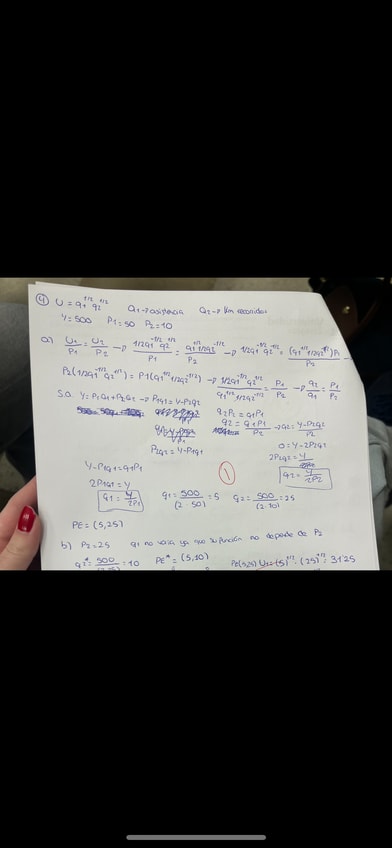 ④ U = q1^1/2 q2^1/2   Q1 → asistencia   Q2 → Km recorridos
Y = 500   P1 = 50   P2 = 10
a) U1/P1 = U2/P2 → 1/2q1^-1/2 q2^1/2 / P1 = q1^1/2 1/2q2^-1/2 / P2 → 1/2q1^-1/2 q2^1/2 = (q1^1/2 1/2q2^-1/2)P1 / P2
P2(1/2q1^-1/2 q2^1/2) = P1(q1^1/2 1/2q2^-1/2) → 1/2q1^-1/2 q2^1/2 / q1^1/2 1/2q2^-1/2 = P1/P2 → q2/q1 = P1/P2
s.a. Y = P1Q1 + P2Q2 → P1q1 = Y - P2q2   q2P2 = q1P1
q2 = q1P1/P2 → q2 = Y-P2q2/P2
P2q2 = Y - P1q1   0 = Y - 2P2q2
Y - P1q1 = q1P1   2P2q2 = Y
2P1q1 = Y   ①   q2 = Y/2P2
q1 = Y/2P1   q1 = 500/(2·50) = 5   q2 = 500/(2·10) = 25
PE = (5,25)
b) P2 = 25   q1 no varía ya que su función no depende de P2
q2* = 500/(2·25) = 10   PE* = (5,10)   PE(5,25) U = (5)^1/2 · (25)^1/2 =